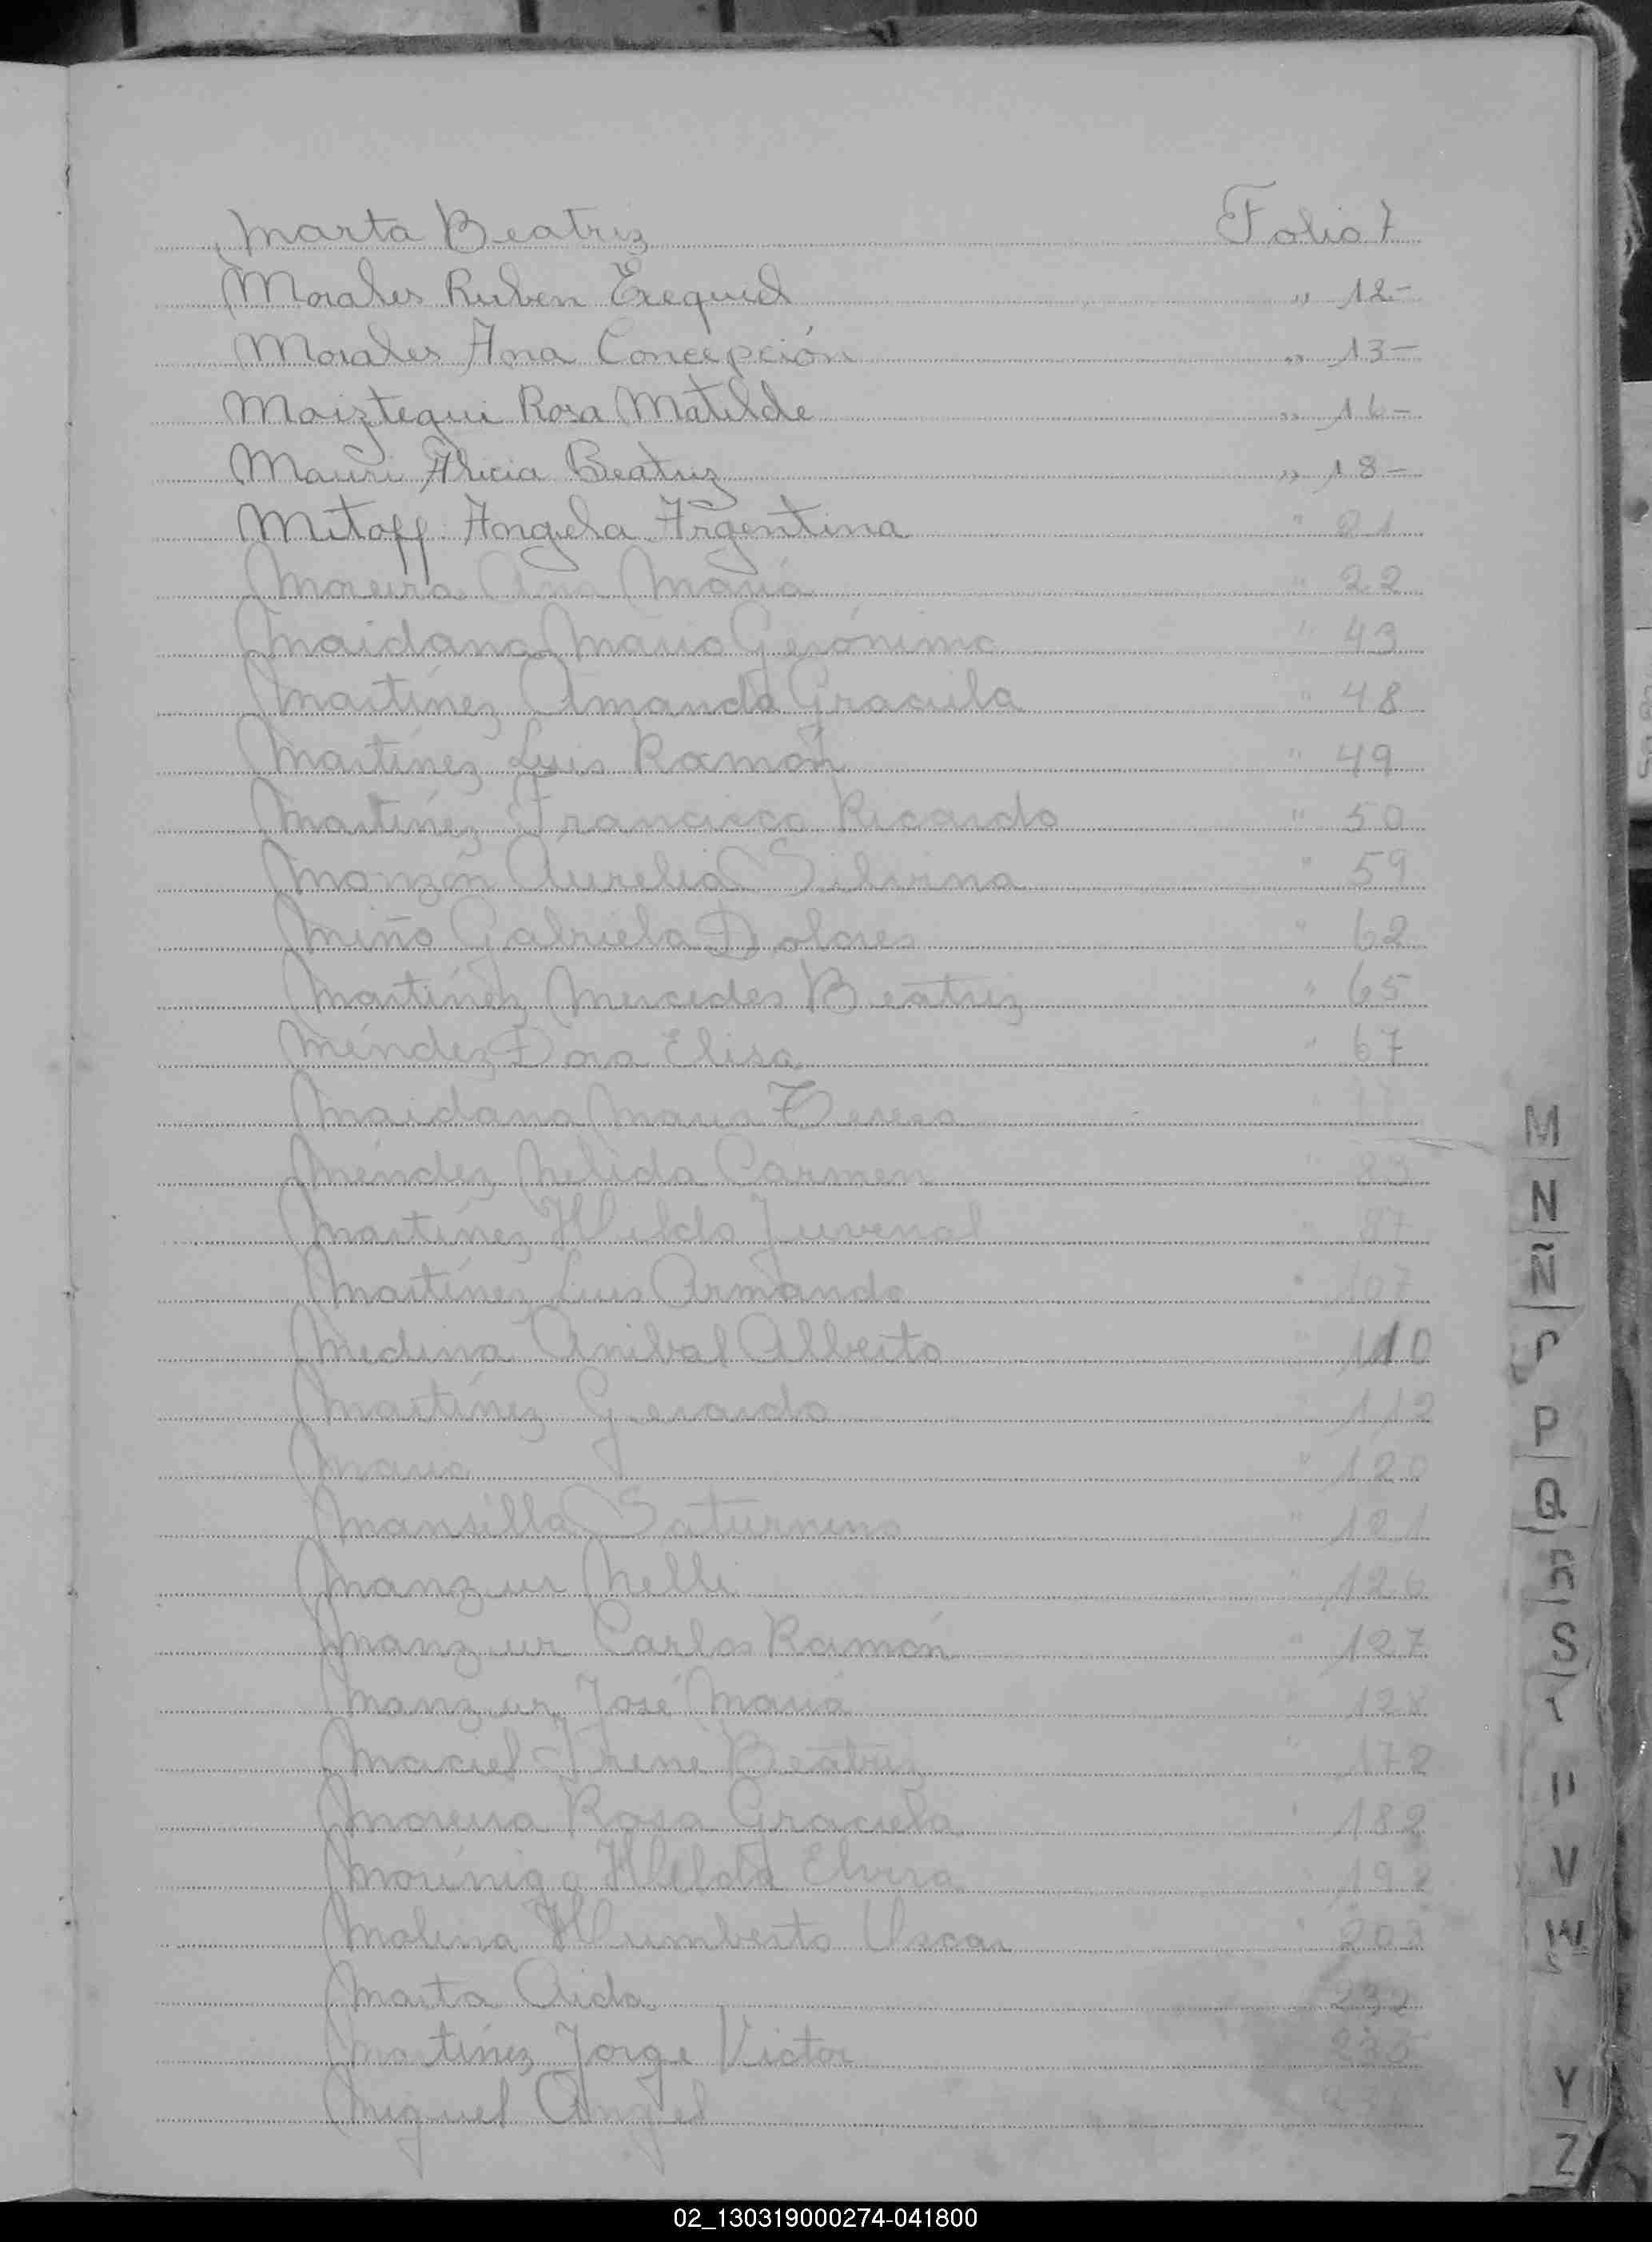 Marta Beatriz Folio 7
Morales Ruben Exequiel " 12-
Morales Ana Concepción " 13-
Maiztegui Rosa Matilde " 16-
Mauri Alicia Beatriz " 18-
Mitoff Angela Argentina " 21
Moreira Ana María " 22
Maidana Mario Gerónimo " 43
Martínez Amanda Graciela " 48
Martínez Luis Ramón " 49
Martínez Francisco Ricardo " 50
Monzón Aurelia Silvina " 59
Miño Gabriela Dolores " 62
Martínez Mercedes Beatriz " 65
Méndez Dora Elisa " 67
Maidana María Teresa
Méndez Nelida Carmen " 83
Martínez Hildo Juvenal " 87
Martínez Luis Armando " 107
Medina Anibal Alberto " 110
Martínez Gerardo " 112
" 120
Mansilla Saturnino " 121
Manzur Nelli " 126
Manzur Carlos Ramón " 127
Manzur José María " 128
Maciel Irene Beatriz " 172
Moreira Rosa Graciela " 182
Morínigo Hilda Elvira
Molina Humberto Oscar " 203
Marta Aida 232
Martínez Jorge Victor
Miguel Angel
M
N
Ñ
P
Q
R
S
V
W
Y
Z
02_130319000274-041800